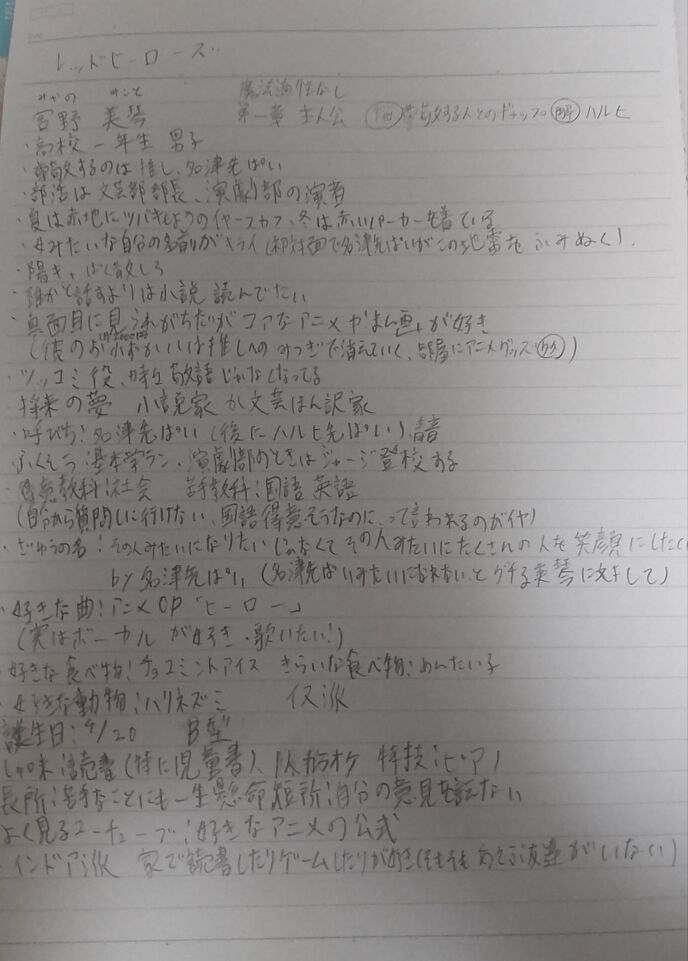 レッドヒーローズ
みやの みこと 魔法適性なし
宮野 美琴 第一章 主人公 尊敬する人とのギャップ ハルヒ
・高校一年生 男子
・尊敬するのは推し、名津先ぱい
・部活は文芸部部長、演劇部の演者
・夏は赤地にツバキもようのイヤーカフ、冬は赤いパーカーを着ている
・女みたいな自分の名前がキライ(初対面で名津先ぱいがこの地雷をふみぬく)
・陽キャばく散しろ
・誰かと話すよりは小説読んでたい
・真面目に見られがちだがコアなアニメやまん画が好き
(彼のおこづかいは推しへのみつぎで消えていく、部屋にアニメグッズ)
・ツッコミ役、時々敬語じゃなくなってる
・将来の夢 小説家か文芸ほん訳家
・呼び方:名津先ぱい(後にハルヒ先ぱい)
ふくそう:基本学ラン・演劇部のときはジャージ登校する
・得意教科:社会 苦手教科:国語 英語
(自分から質問しに行けない、国語得意そうなのに、って言われるのがイヤ)
・ざゆうの名:その人みたいになりたいじゃなくてその人みたいにたくさんの人を笑顔にしたい
by 名津先ぱい(名津先ぱいみたいになれないとグチる美琴に対して)
・好きな曲:アニメOP「ヒーロー」
(実はボーカルが好き・歌いたい!)
好きな食べ物:チョコミントアイス きらいな食べ物:めんたい子
・好きな動物:ハリネズミ
誕生日:4/20 B型
しゅ味:読書(特に児童書)、1人カラオケ 特技:ピアノ
長所:苦手なことにも一生懸命 短所:自分の意見を言えない
よく見るユーチューブ:好きなアニメの公式
・インドア派 家で読書したりゲームしたりが好き(そもそもあそぶ友達がいない)